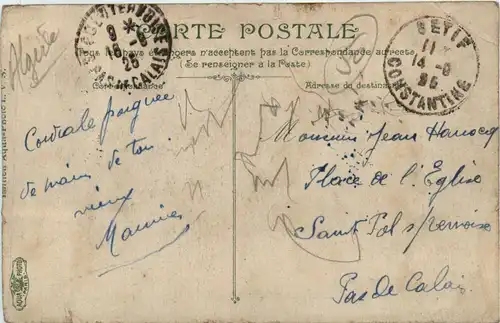 Algérie
CARTE POSTALE
Tous les pays étrangers n'acceptent pas la Correspondance au recto
(Se renseigner à la Poste)
Correspondance
Adresse du destinataire
SETIF
11 *
14 -8
25
CONSTANTINE
8 *
18 -8
25
PAS DE CALAIS
50
Cordiale poignée
de main de ton
vieux
Maurice
Monsieur Jean
Place de l'Eglise
Saint Pol s/ternoise
Pas de Calais